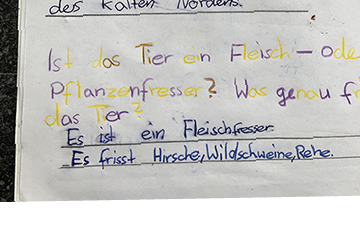 des kalten Nordens.
Ist das Tier ein Fleisch- ode
Pflanzenfresser? Was genau fr
das Tier?
Es ist ein Fleischfresser.
Es frisst Hirsche, Wildschweine, Rehe.